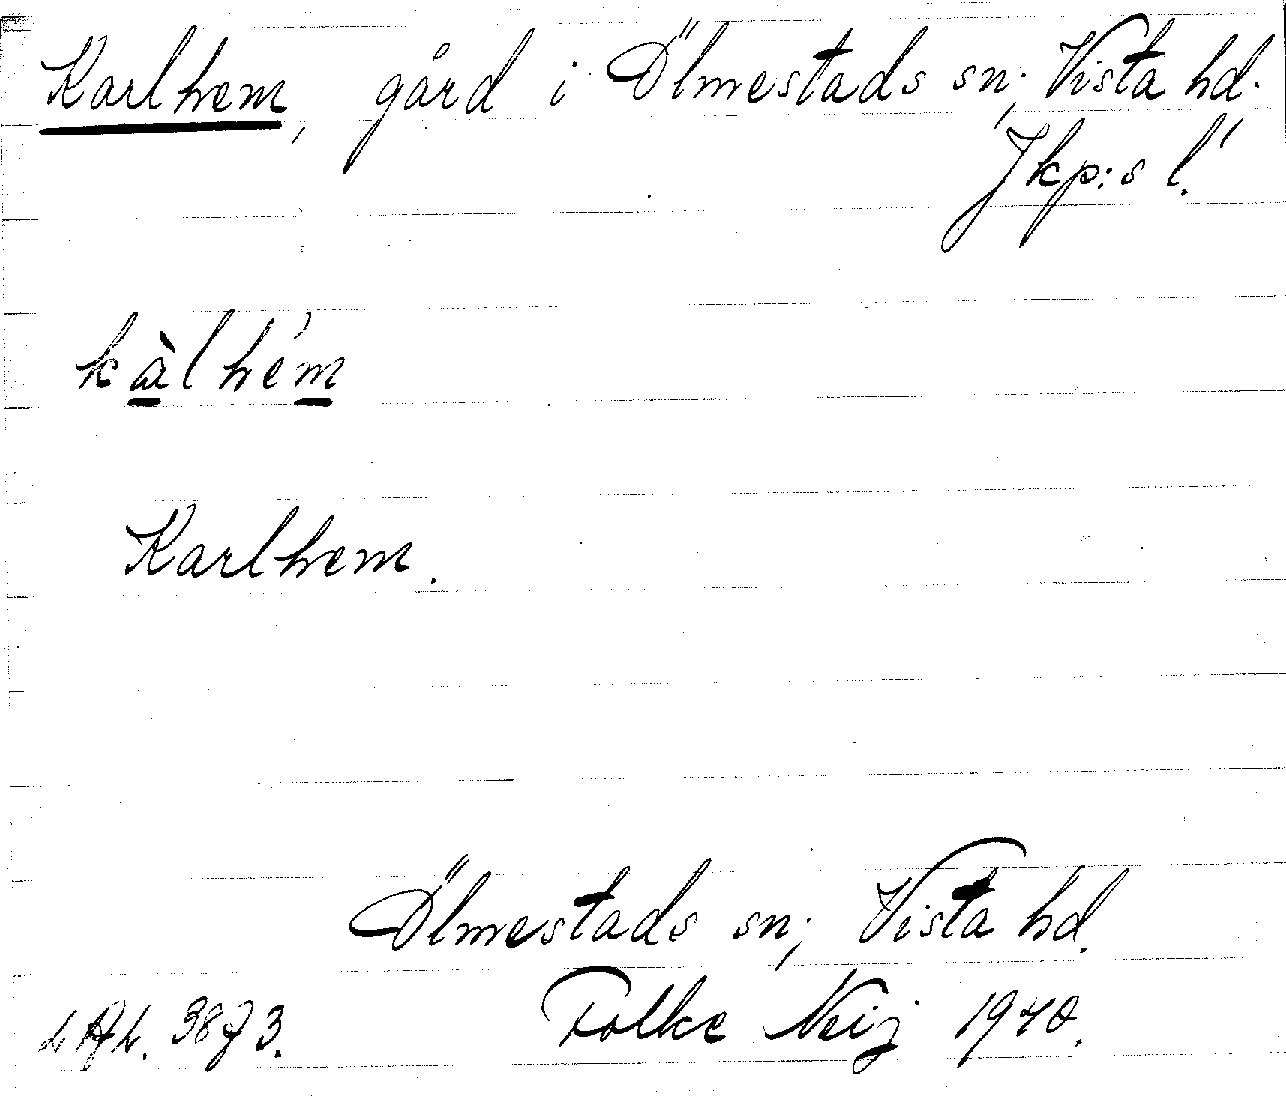 Karlhem, gård i Ölmestads sn; Vista hd.
Jkp:s l.
kàlhém
Karlhem.
Ölmestads sn; Vista hd.
Folke Neij 1940.
3873.